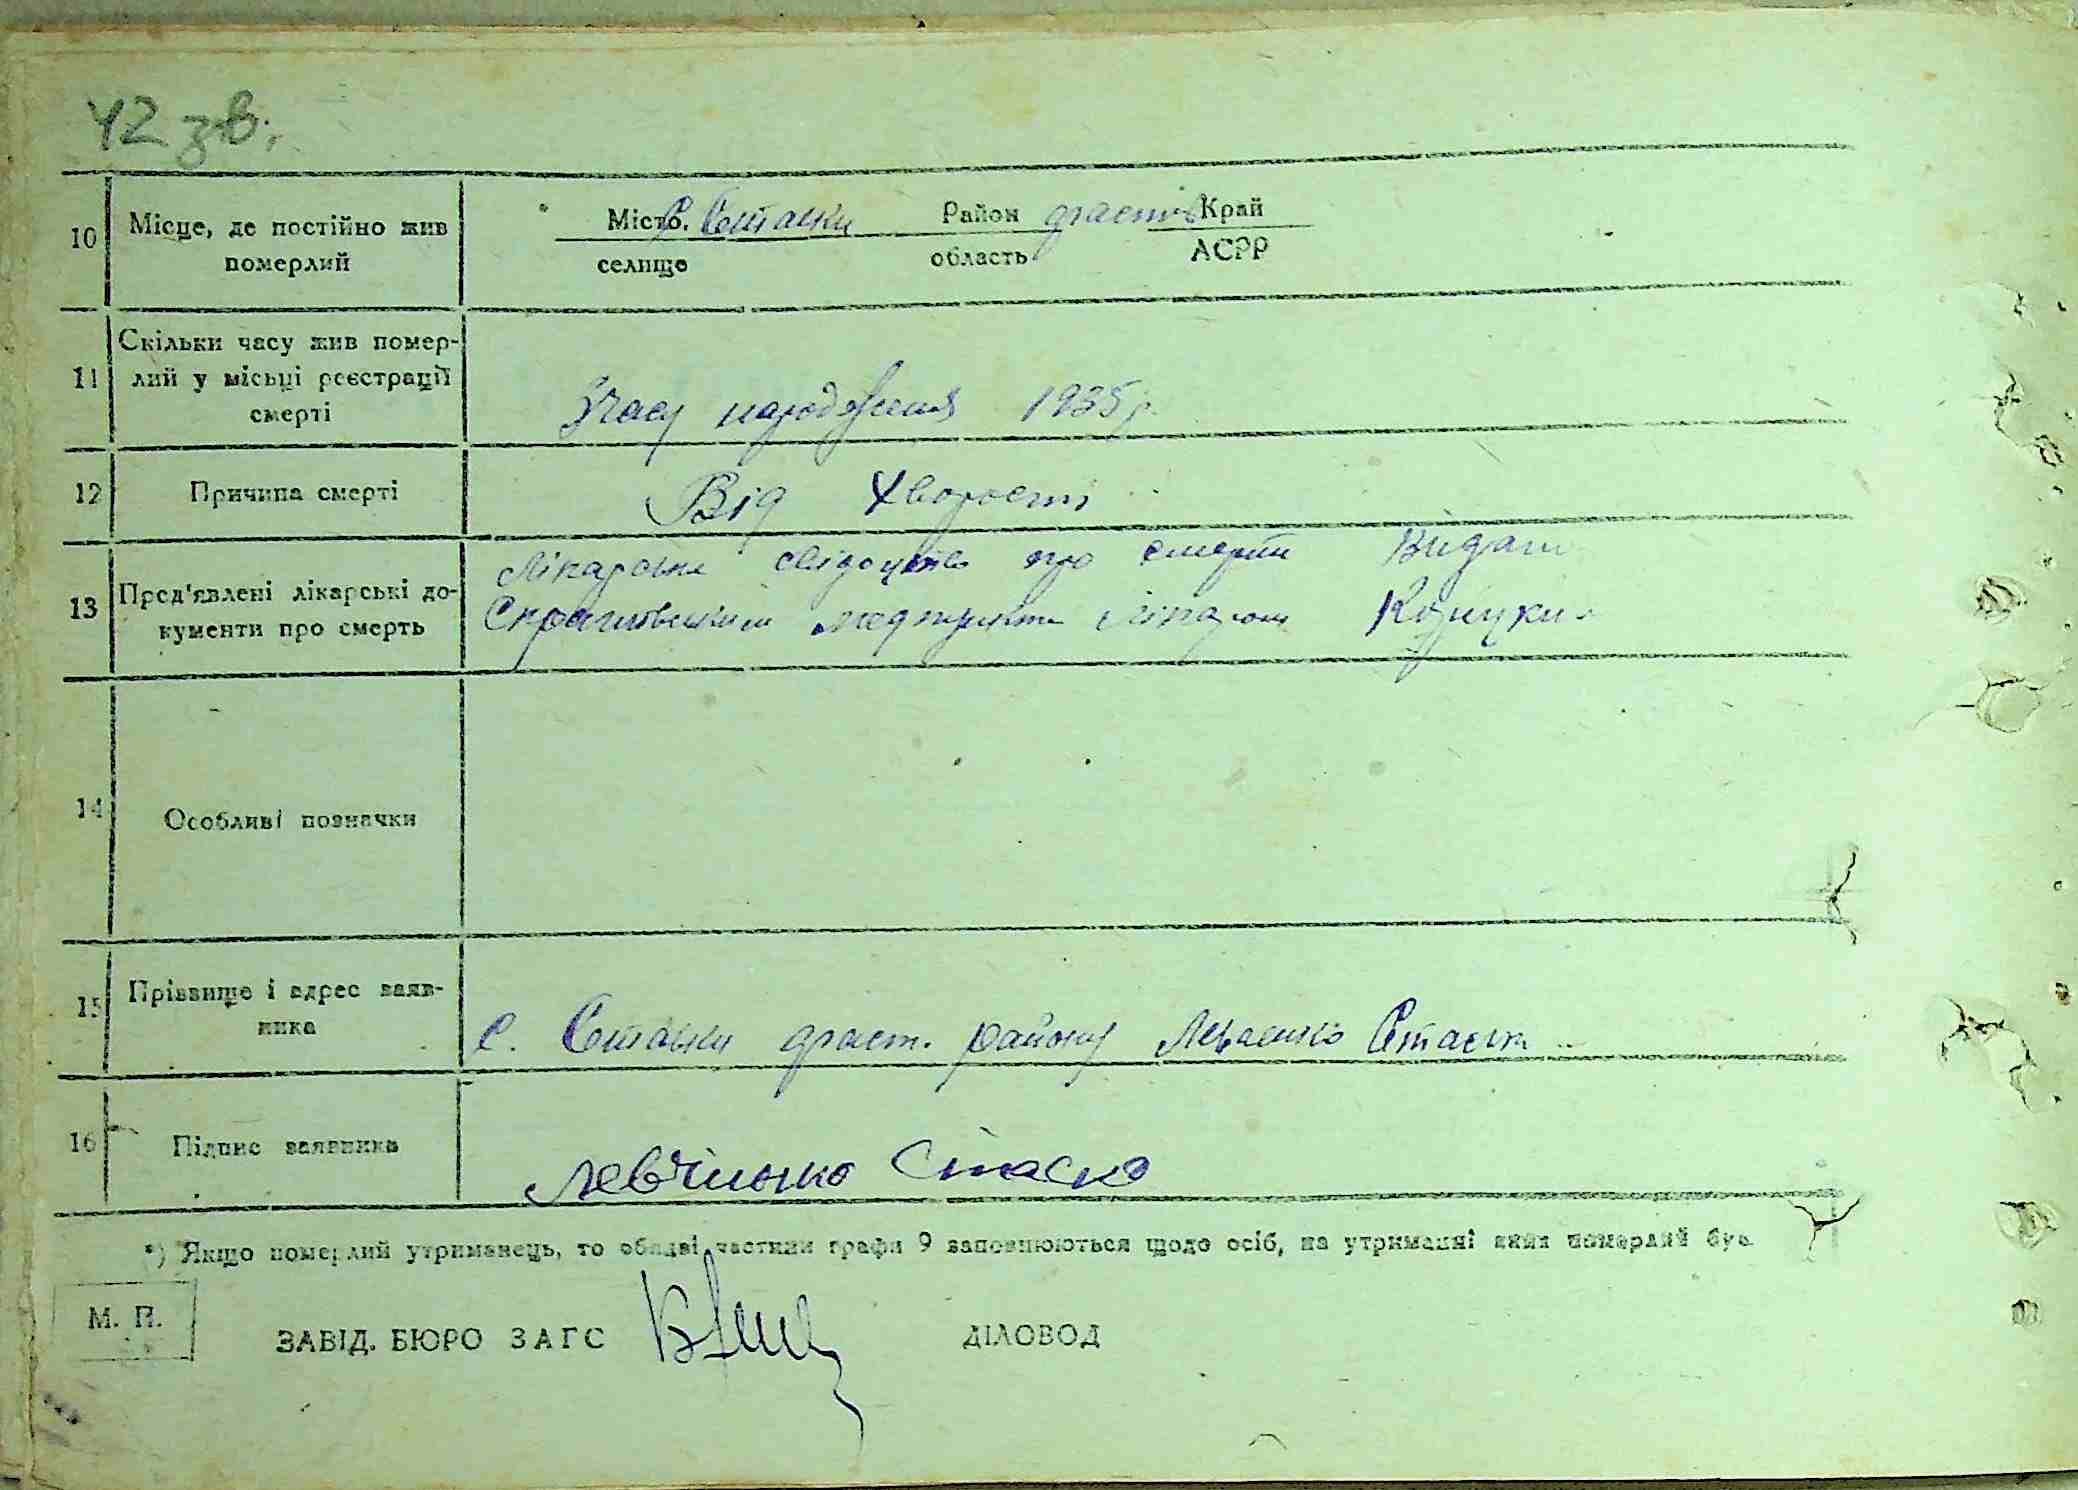 42 зв.
10 Місце, де постійно жив померлий
Місто. с. Ставки Район фастів Край
селище область АСРР
11 Скільки часу жив помер-
лий у місьці реєстрації
смерті
Зчасу народження 1935 р.
12 Причина смерті Від хворости
13 Пред'явлені лікарські до-
кументи про смерть
Лікарське свідоцтво про смерть Видано
медпунктом лікарем
14 Особливі позначки
15 Прізвище і адрес заяв-
ника
с. Ставки фаст. району
16 Підпис заявника
*) Якщо померлий утриманець, то обидві частини графи 9 заповнюються щодо осіб, на утриманні яких померлий був
М. П.
ЗАВІД. БЮРО ЗАГС ДІЛОВОД